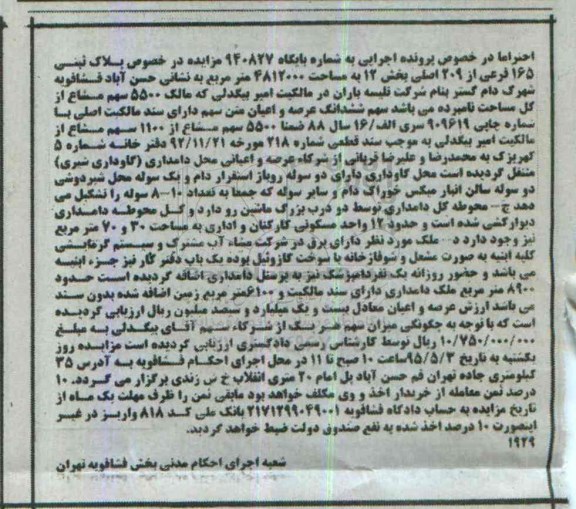 احتراما در خصوص پرونده اجرایی به شماره بایگانه ۹۴۰۸۲۷ مزایده در خصوص پلاک ثبتی
۱۶۵ فرعی از ۲۰۹ اصلی بخش ۱۲ به مساحت ۴۸۱۲۰۰۰ متر مربع به نشانی حسن آباد فشافویه
شهرک دام گستر بنام شرکت تلیسه باران در مالکیت امیر بیگدلی که مالک ۵۵۰۰ سهم مشاع از
کل مساحت نامبرده می باشد سهم ششدانگ عرصه و اعیان متن سهم دارای سند مالکیت اصلی با
شماره چاپی ۹۰۹۶۱۹ سری الف/۱۶ سال ۸۸ ضمنا ۵۵۰۰ سهم مشاع از ۱۱۰۰ سهم مشاع از
مالکیت امیر بیگدلی به موجب سند قطعی شماره ۲۱۸ مورخه ۹۲/۱۱/۲۱ دفتر خانه شماره ۵
کهریزک به محمدرضا و علیرضا قربانی از شرکاء عرصه و اعیانی محل دامداری (گاوداری شیری)
منتقل گردیده است محل گاوداری دارای دو سوله روباز استقرار دام و یک سوله محل شیردوشی
دو سوله سالن انبار میکس خوراک دام و سایر سوله که جمعا به تعداد ۱۰-۸ سوله را تشکیل می
دهد ج- محوطه کل دامداری توسط دو درب بزرگ ماشین رو دارد و کل محوطه دامداری
دیوارکشی شده است و حدود ۱۲ واحد مسکونی کارکنان و اداری به مساحت ۳۰ و ۷۰ متر مربع
نیز وجود دارد د- ملک مورد نظر دارای برق در شرکت منشاء آب مشترک و سیستم گرمایشی
کلیه ابنیه به صورت مشعل و شوفاژخانه با سوخت گازوئیل بوده یک باب دفتر کار نیز جزء ابنیه
می باشد و حضور روزانه یک نفردامپزشک نیز به پرسنل دامداری اضافه گردیده است حدود
۸۹۰۰ متر مربع ملک دامداری دارای سند مالکیت و ۶۱۰۰متر مربع زمین اضافه شده بدون سند
می باشد ارزش عرصه و اعیان معادل بیست و یک میلیارد و سیصد میلیون ریال ارزیابی گردیده
است که با توجه به چگونگی میزان سهم هر یک از شرکاء سهم آقای بیگدلی به مبلغ
۱۰/۷۵۰/۰۰۰/۰۰۰ ریال توسط کارشناس رسمی دادگستری ارزیابی گردیده است مزایده روز
یکشنبه به تاریخ ۹۵/۵/۳ساعت ۱۰ صبح تا ۱۱ در محل اجرای احکام فشافویه به آدرس ۳۵
کیلومتری جاده تهران قم حسن آباد بل امام ۲۰ متری انقلاب خ بی زندی برگزار می گردد. ۱۰
درصد ثمن معامله از خریدار اخذ و وی مکلف خواهد بود مابقی ثمن را ظرف مهلت یک ماه از
تاریخ مزایده به حساب دادگاه فشافویه ۲۱۷۱۲۹۹۰۴۹۰۰۱ بانک ملی کد ۸۱۸ واریز در غیر
اینصورت ۱۰ درصد اخذ شده به نفع صندوق دولت ضبط خواهد گردید.
۱۹۲۹
شعبه اجرای احکام مدنی بخش فشافویه تهران